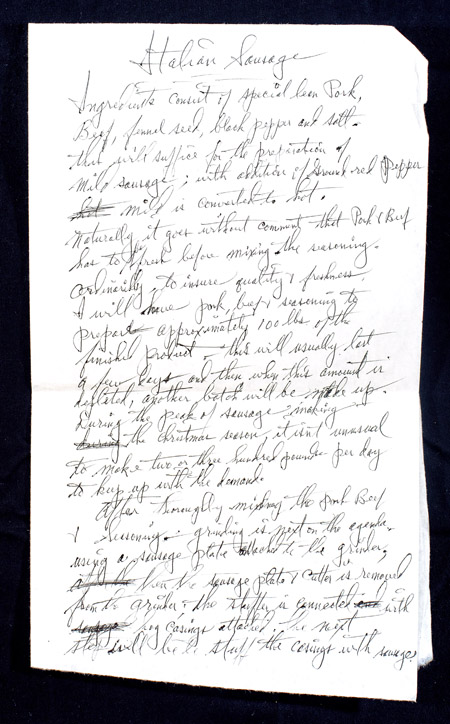 Italian Sausage
Ingredients consist of special lean Pork,
Beef, fennel seed, black pepper and salt.
that will suffice for the preparation of
mild sausage; with addition of Ground red pepper
mild is converted to hot.
Naturally, it goes without comment that Pork & Beef
has to fresh before mixing the seasoning.
Ordinarily, to insure quality & freshness
I will have pork, beef & seasoning to
prepare approximately 100 lbs of the
finished product - this will usually last
a few days and then when this amount is
depleted, another batch will be made up.
During the peak of sausage making
during the christmas season, it isnt unusual
to make two or three hundred pounds per day
to keep up with the demand.
After thoroughly mixing the pork Beef
& seasoning - grinding is next on the agenda.
using a sausage plate attached to the grinder,
then the sausage plate & cutter is removed
from the grinder & the stuffer is connected with
hog casings attached the next
step will be to stuff the casings with sausage.